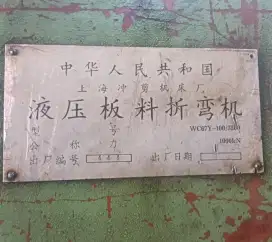 中华人民共和国
上海冲剪机床厂
液压板料折弯机
型号 WC67Y-100/3200
公称力 1000kN
出厂编号 出厂日期